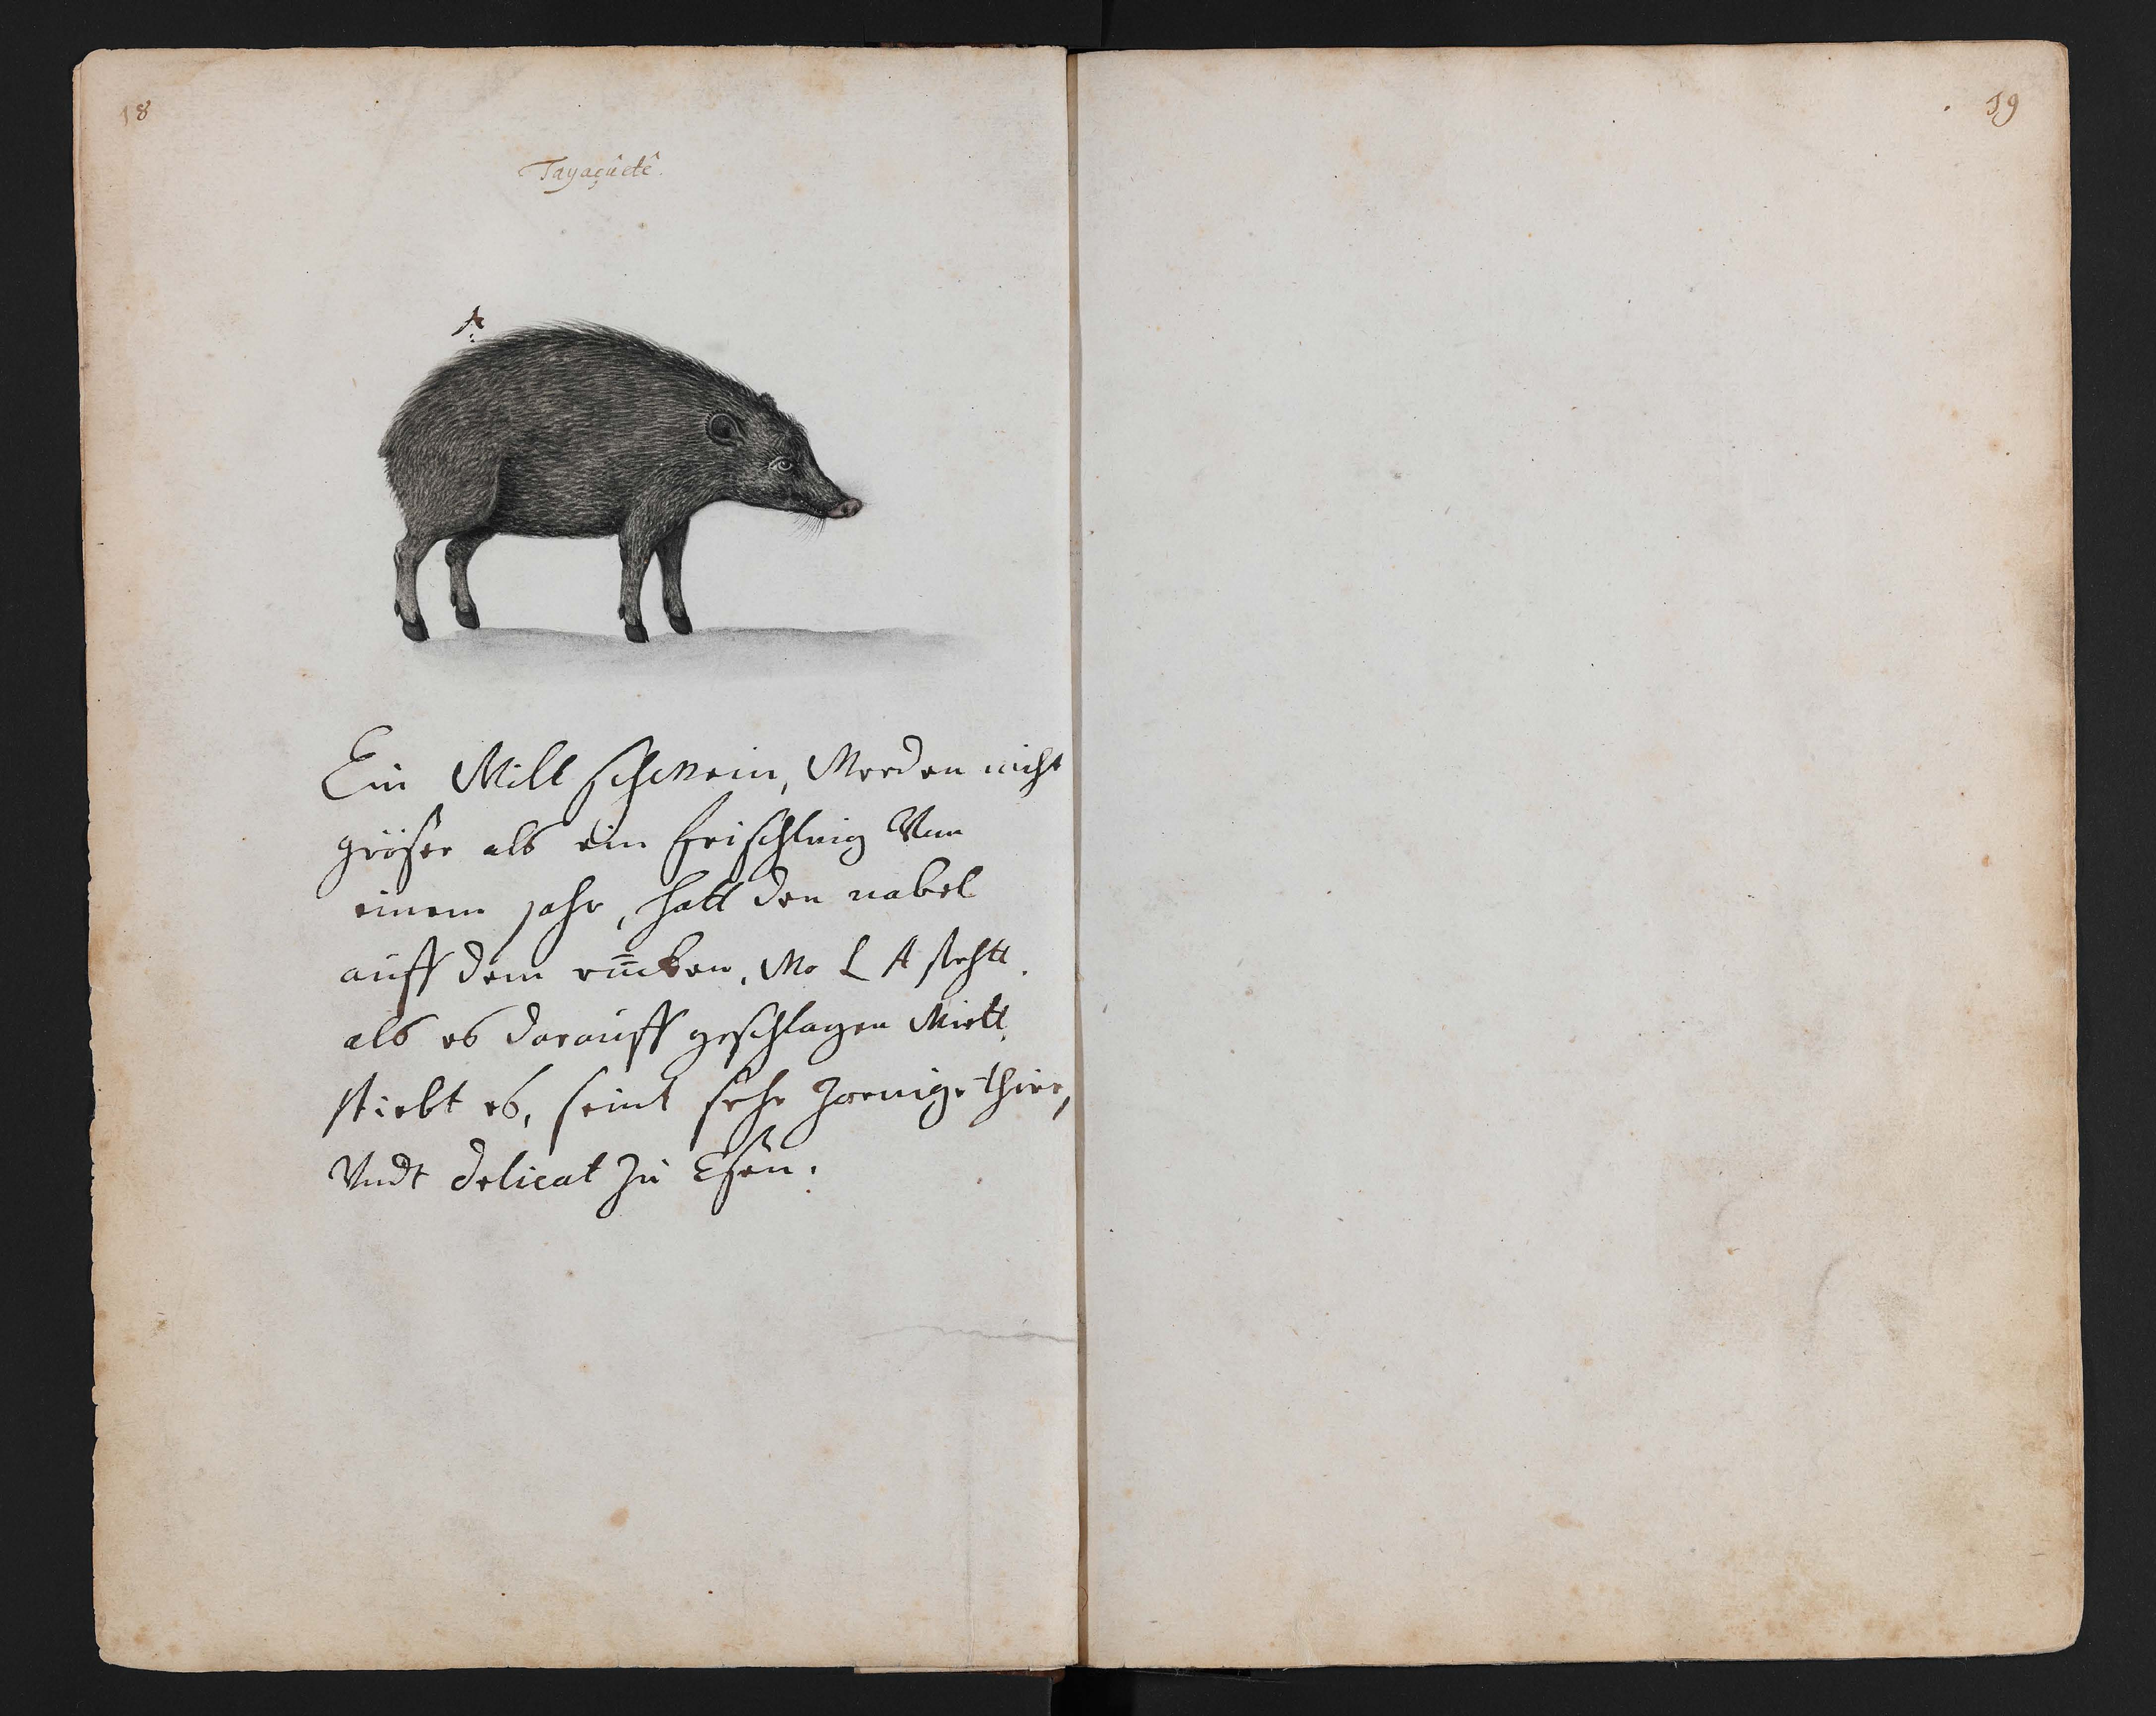 18
19
Tayaçûetê.
A
Ein Wilt schwein, Werden nicht
gröser als ein frischling Von
einem jahr, hatt den nabel
auff dem rücken, Wo L A stehtt.
als es darauff geschlagen Wirtt,
stirbt es, seint sehr Zornige thire,
Vndt delicat Zu Esen.